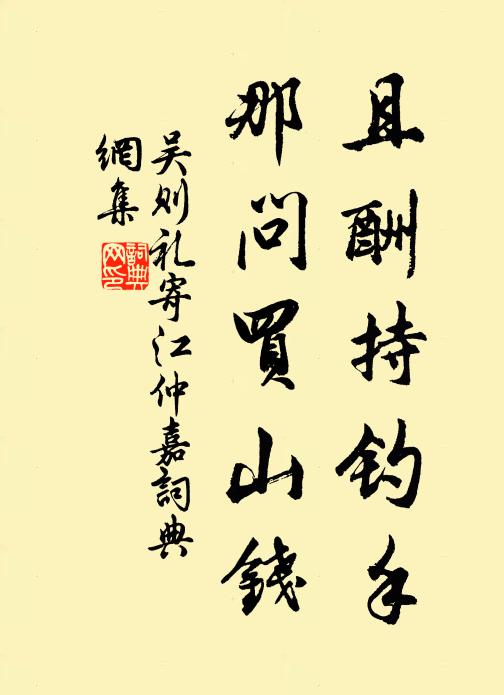 且酬持钓手
那问買山錢
吴则礼寄江仲嘉詞典
網集
詞典
网印